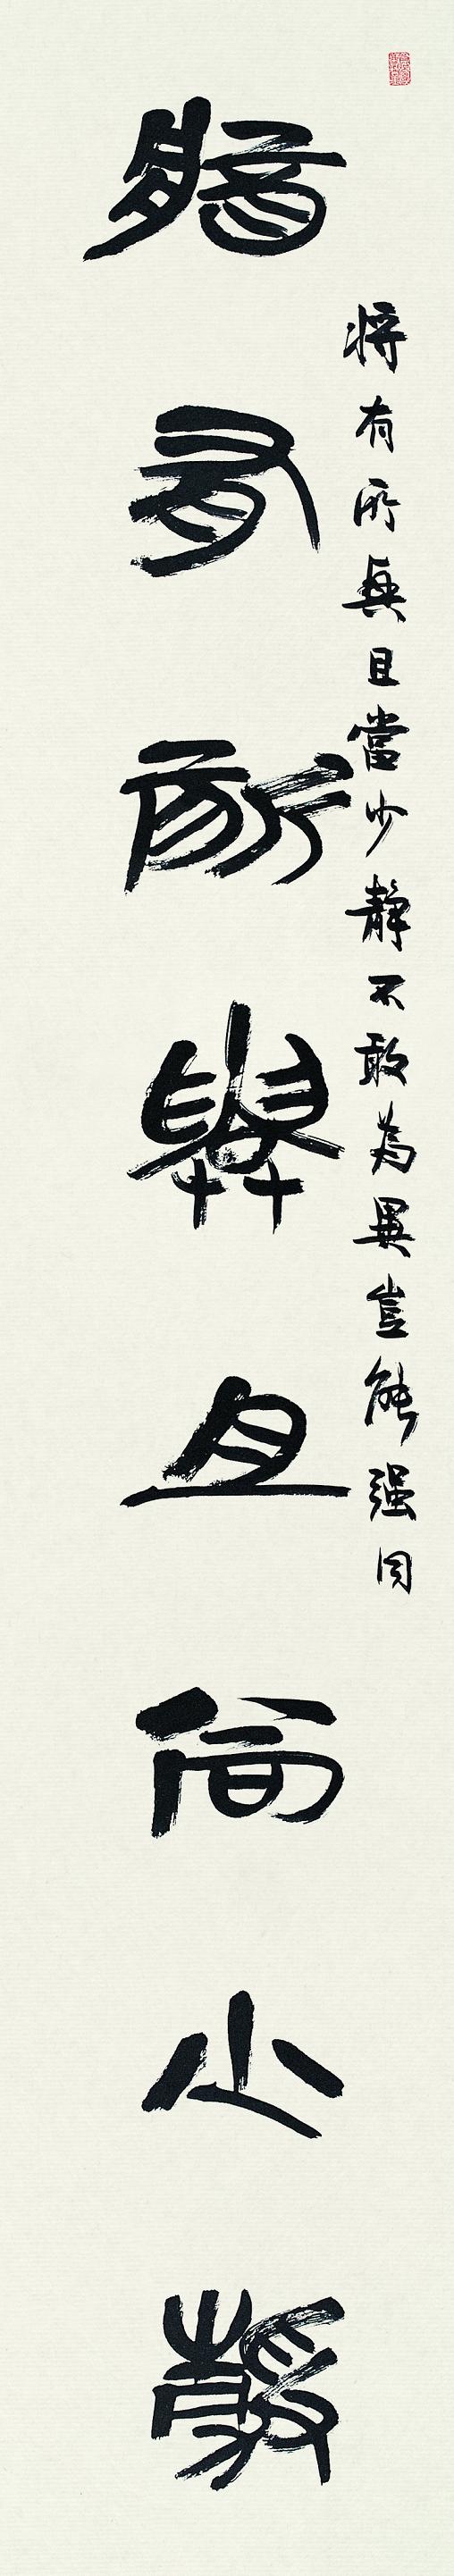 将有所與且當少靜不敢為異豈能强同
將有所與且尚少靜